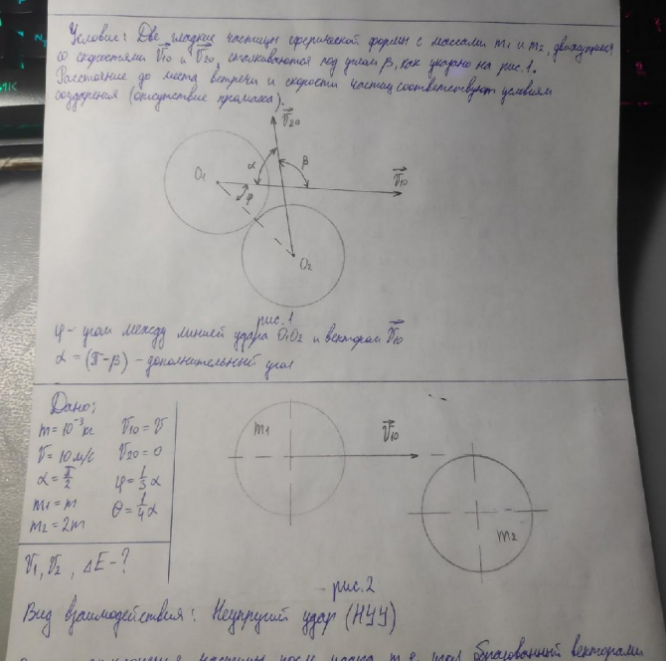 Условие: Две гладкие частицы сферической формы с массами m₁ и m₂, движущиеся
со скоростями V₁₀ и V₂₀, сталкиваются под углом β, как указано на рис. 1.
Расстояние до места встречи и скорости частиц соответствуют условиям
соударения (отсутствие промаха).
V₂₀
α
β
O₁
V₁₀
φ
O₂
рис. 1
φ - угол между линией удара O₁O₂ и вектором V₁₀
α = (π-β) - дополнительный угол
Дано:
m = 10⁻³ кг V₁₀ = V
V = 10 м/с V₂₀ = 0
α = π/2 φ = 1/3 α
m₁ = m θ = 1/4 α
m₂ = 2m
V₁, V₂, ΔE - ?
m₁
V₁₀
m₂
рис. 2
Вид взаимодействия: Неупругий удар (НУУ)
частицы после удара образованный векторами